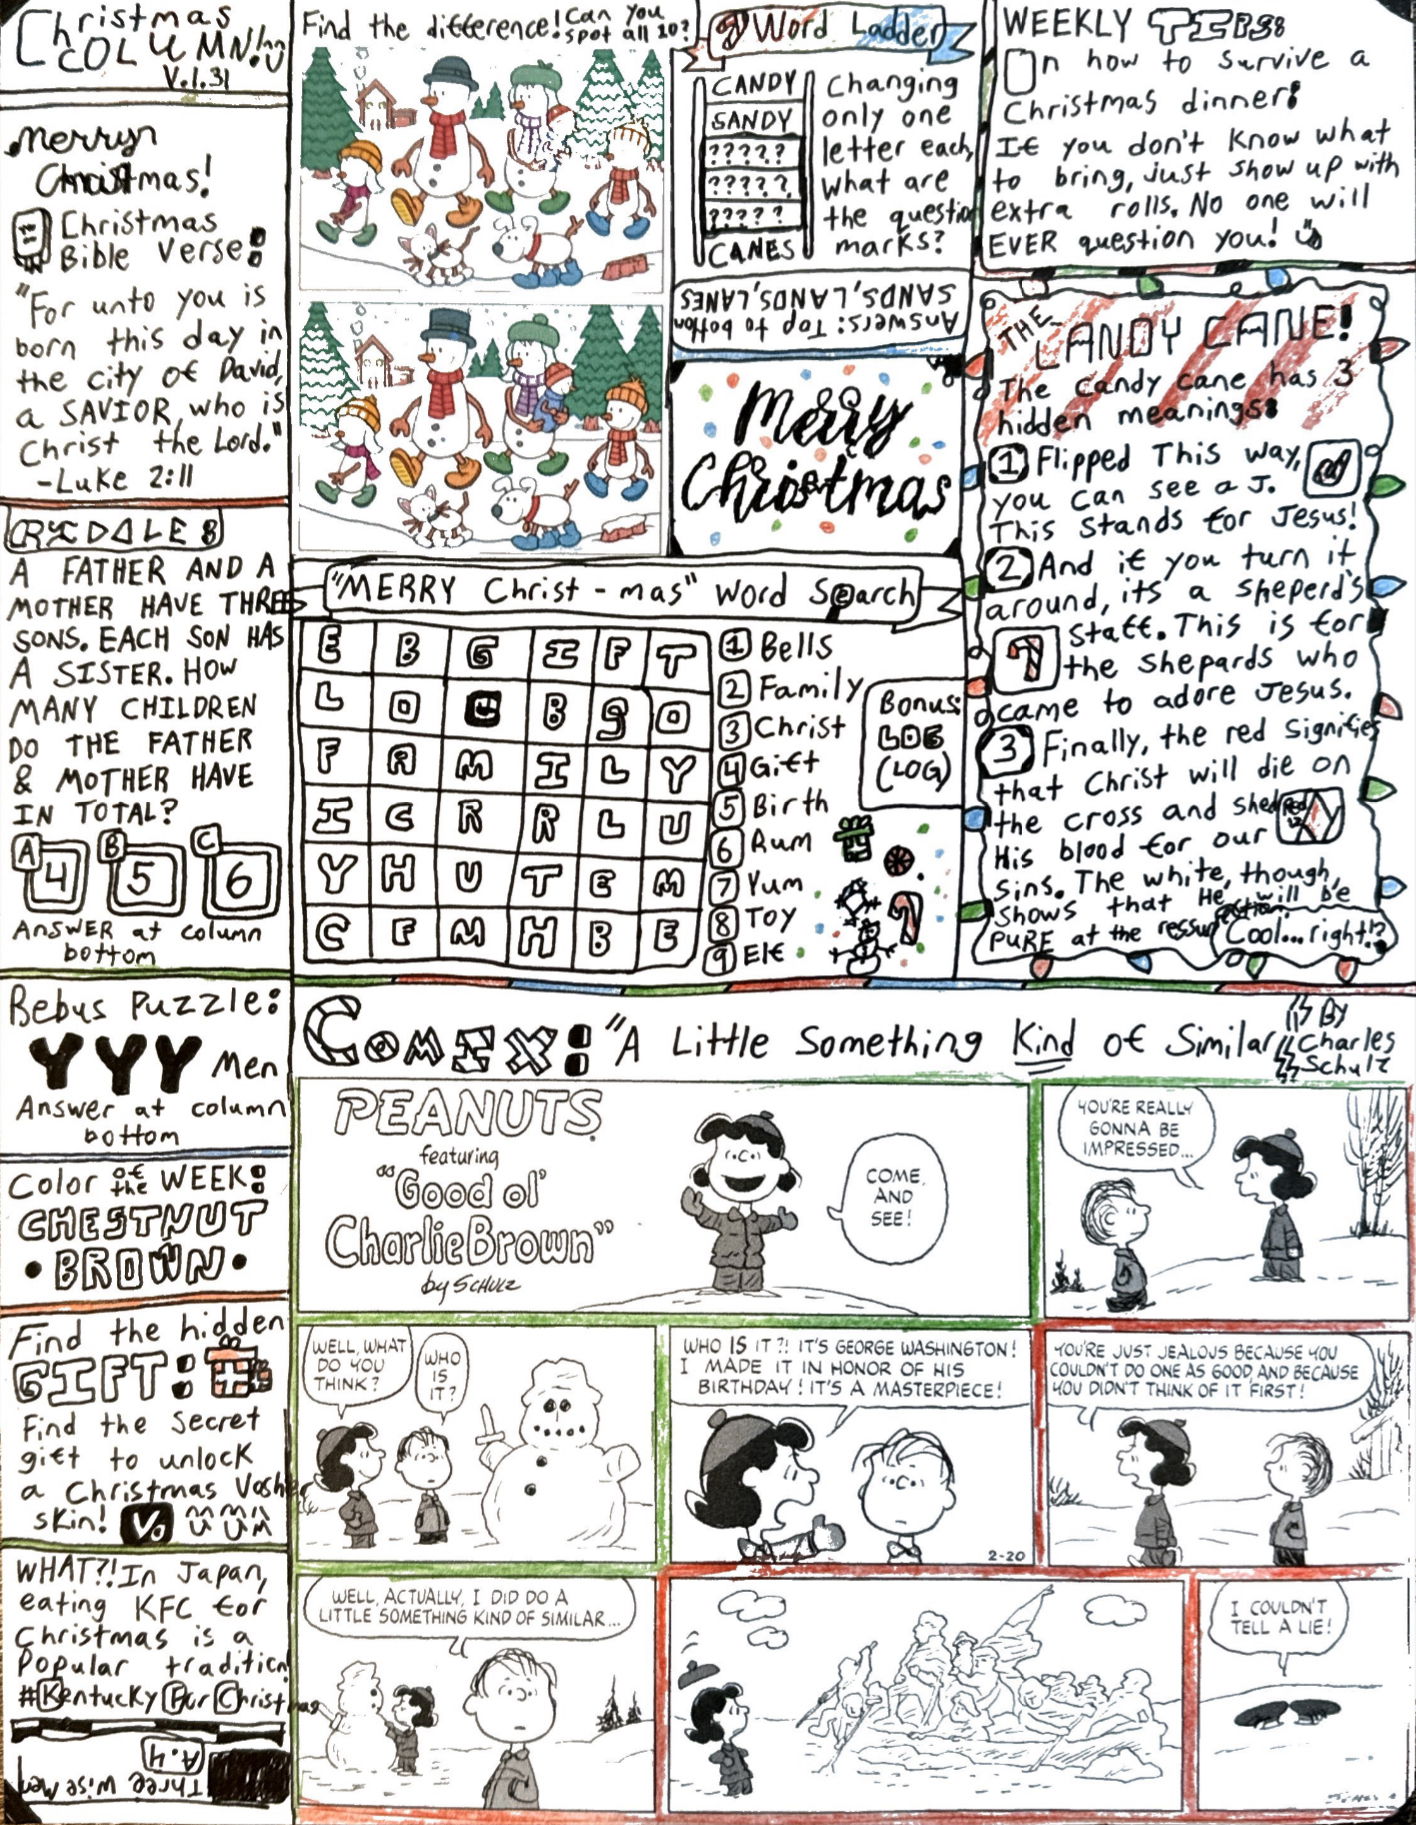 Christmas
COLUMN!
V.1.31
Merry
Christmas!
Christmas
Bible Verse:
"For unto you is
born this day in
the city of David,
a SAVIOR, who is
Christ the Lord."
-Luke 2:11
RIDDLE:
A FATHER AND A
MOTHER HAVE THREE
SONS. EACH SON HAS
A SISTER. HOW
MANY CHILDREN
DO THE FATHER
& MOTHER HAVE
IN TOTAL?
A 4 B 5 C 6
Answer at column
bottom
Rebus Puzzle:
YYY Men
Answer at column
bottom
Color of the WEEK:
CHESTNUT
• BROWN •
Find the hidden
GIFT:
Find the secret
gift to unlock
a Christmas Vosher
skin! V.
WHAT?! In Japan,
eating KFC for
Christmas is a
Popular tradition
#Kentucky For Christmas
A:4
Three wise men
Find the difference! Can you
spot all 10?
Word Ladder
CANDY
SANDY
?????
?????
?????
CANES
Changing
only one
letter each,
what are
the question
marks?
Answers: Top to bottom
SANDS, LANDS, LANES
Merry
Christmas
"MERRY Christ-mas" Word Search
E B G I F T
L O C B S O
F A M I L Y
I C R R L U
Y H U T E M
C F M H B E
1 Bells
2 Family
3 Christ
4 Gift
5 Birth
6 Rum
7 Yum
8 Toy
9 Elf
Bonus:
LOG
(LOG)
WEEKLY TIPS:
On how to survive a
Christmas dinner:
If you don't know what
to bring, just show up with
extra rolls. No one will
EVER question you!
THE
CANDY CANE!
The candy cane has 3
hidden meanings:
1 Flipped This way,
you can see a J.
This stands for Jesus!
2 And if you turn it
around, its a sheperd's
staff. This is for
the shepards who
came to adore Jesus.
3 Finally, the red signifies
that Christ will die on
the cross and shed
His blood for our
sins. The white, though,
shows that He will be
PURE at the
Cool... right!?
Comix: "A Little Something Kind of Similar"
By
Charles
Schulz
PEANUTS
featuring
"Good ol'
Charlie Brown"
by SCHULZ
COME
AND
SEE!
YOU'RE REALLY
GONNA BE
IMPRESSED...
WELL, WHAT
DO YOU
THINK?
WHO
IS
IT?
WHO IS IT?! IT'S GEORGE WASHINGTON!
I MADE IT IN HONOR OF HIS
BIRTHDAY! IT'S A MASTERPIECE!
2-20
YOU'RE JUST JEALOUS BECAUSE YOU
COULDN'T DO ONE AS GOOD AND BECAUSE
YOU DIDN'T THINK OF IT FIRST!
WELL, ACTUALLY, I DID DO A
LITTLE SOMETHING KIND OF SIMILAR...
I COULDN'T
TELL A LIE!